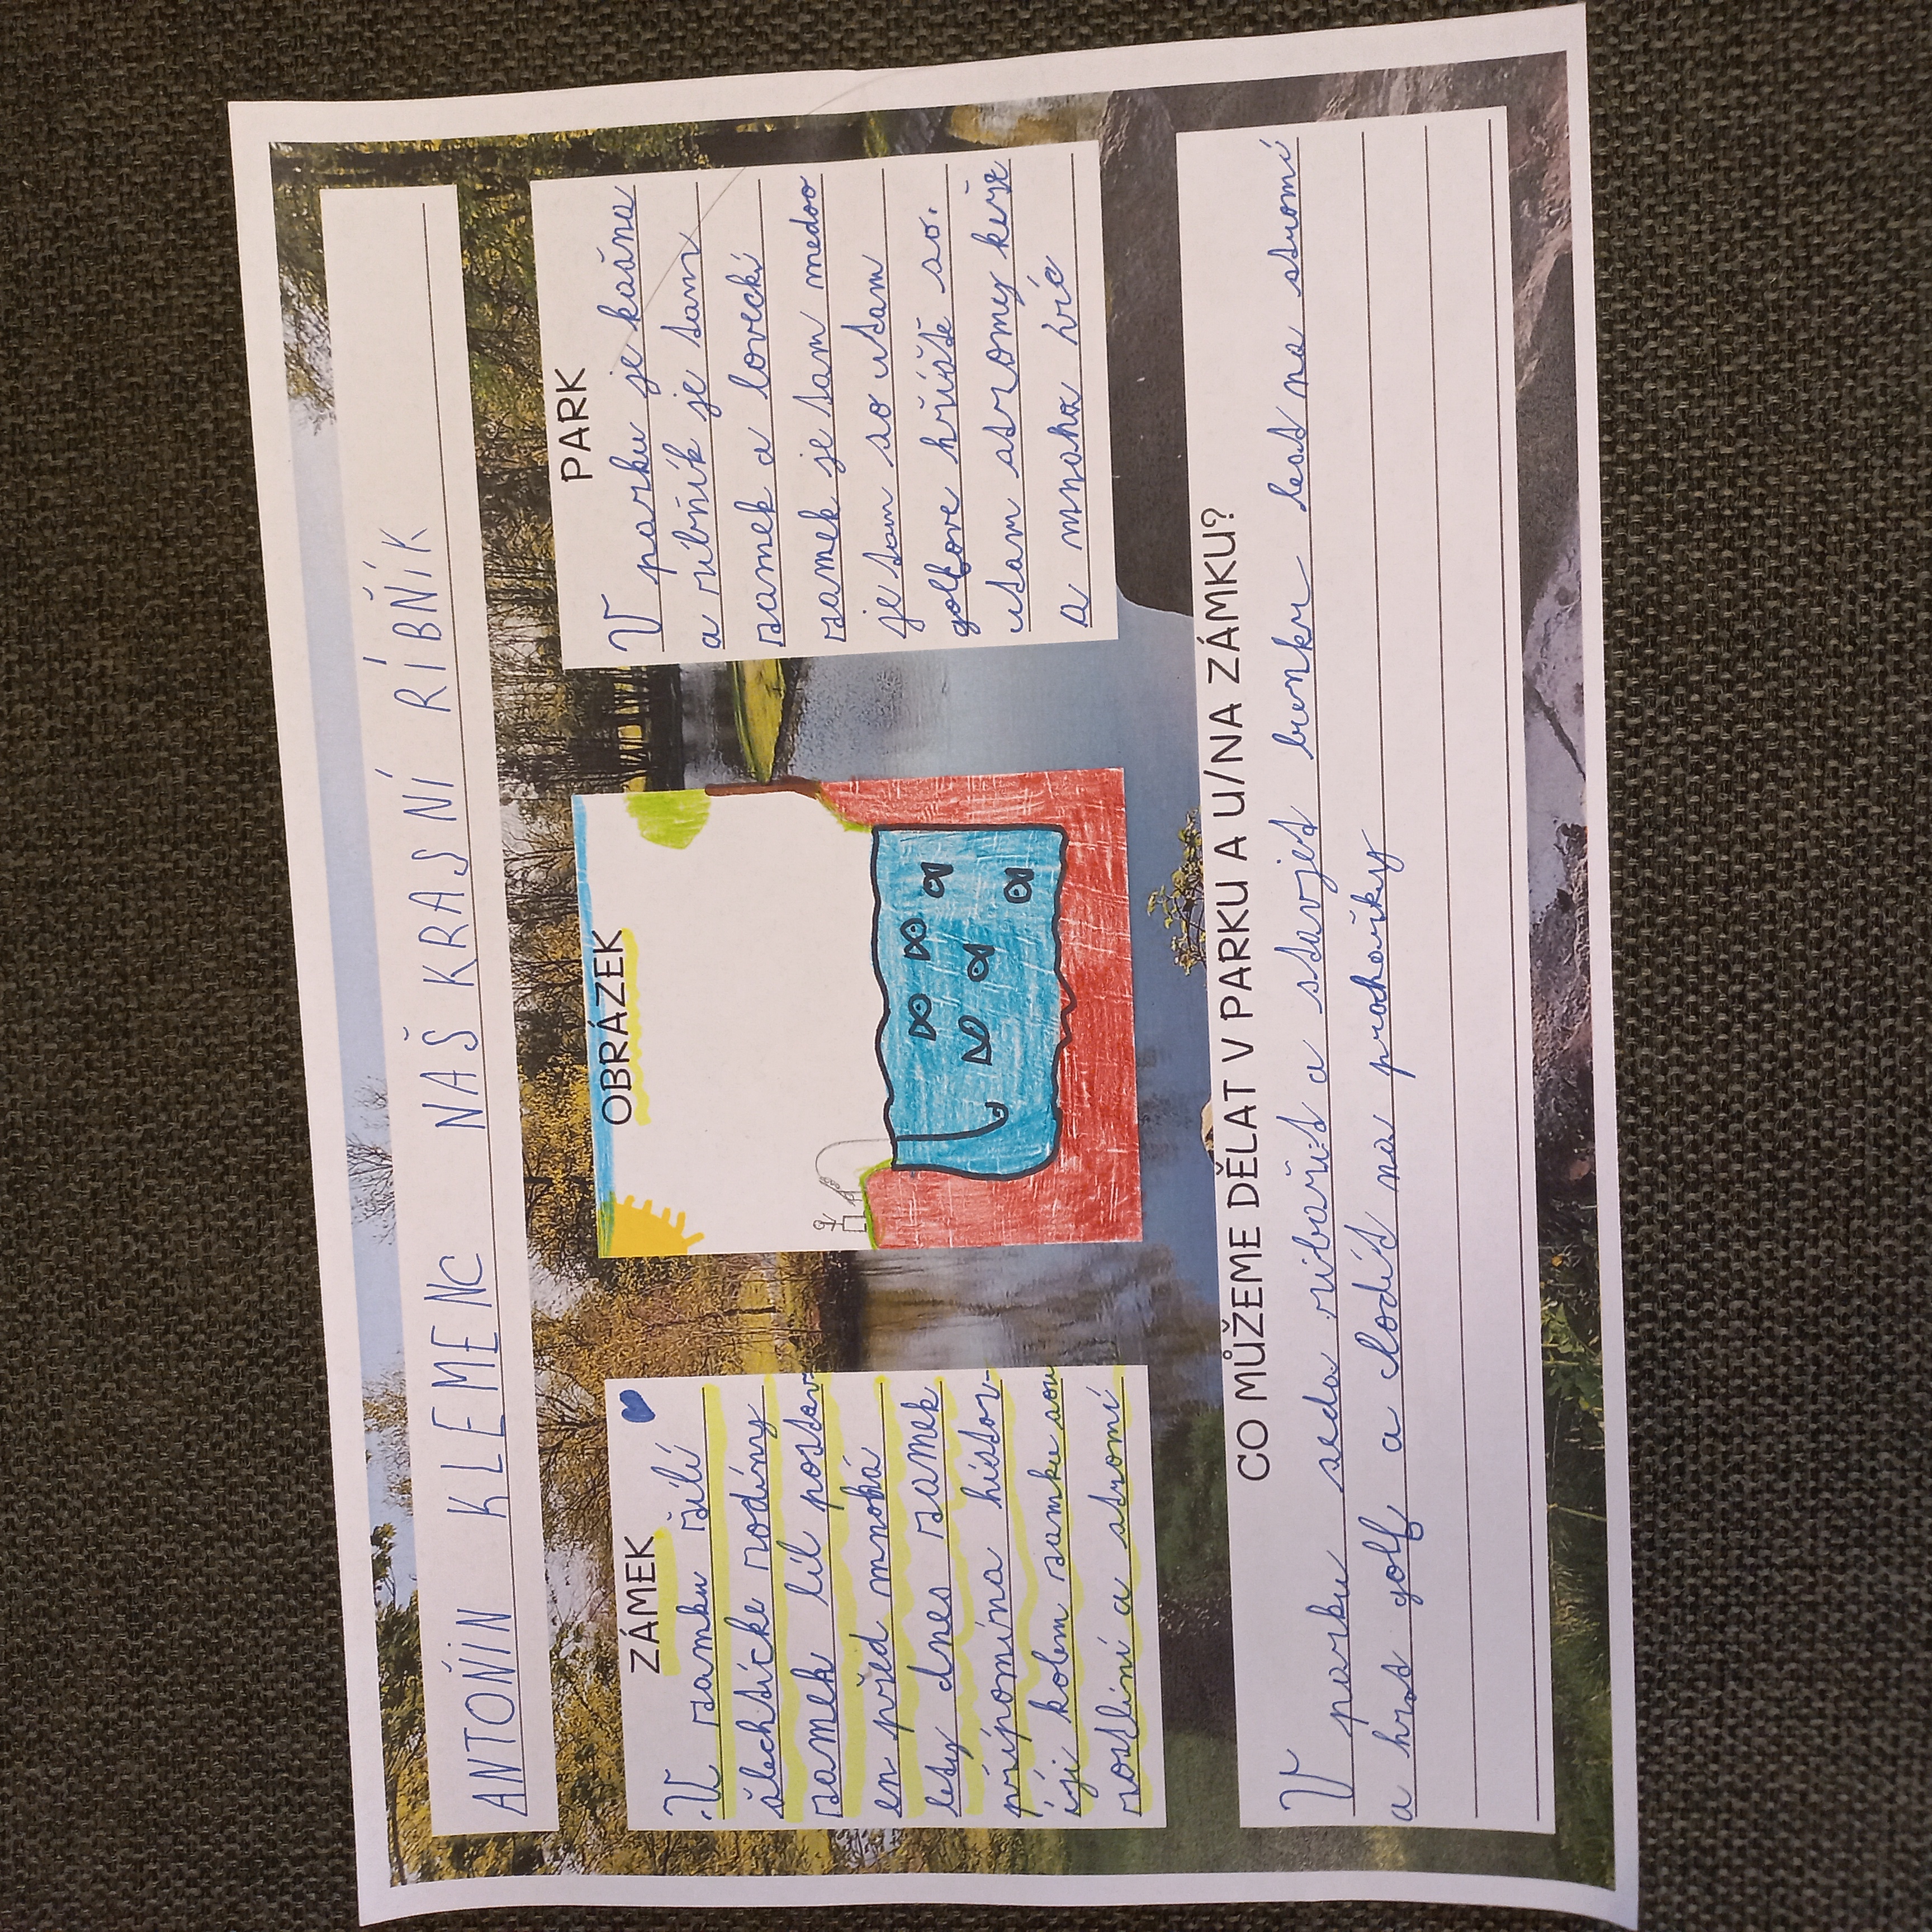 ANTOŇÍN KLEMENC NAŠ KRASNÍ RÍBŇÍK
ZÁMEK
V zamku žilí
šlechtícke rodíny
zamek bíl postav
en před mnohá
lety dnes zamek
přípomína hístor
íji kolem zamku sou
rostliní a stromí
OBRÁZEK
PARK
V parku je kašna
a ríbňík je tam
zamek a loveckí
zamek je tam medoo
je tam so utam
golfove hříště so.
utam stromy keře
a mnoha víc
CO MŮŽEME DĚLAT V PARKU A U/NA ZÁMKU?
V parku seda ríbařít a stavjet bunkr lest na stromí
a hrat golf a chodít na procházky